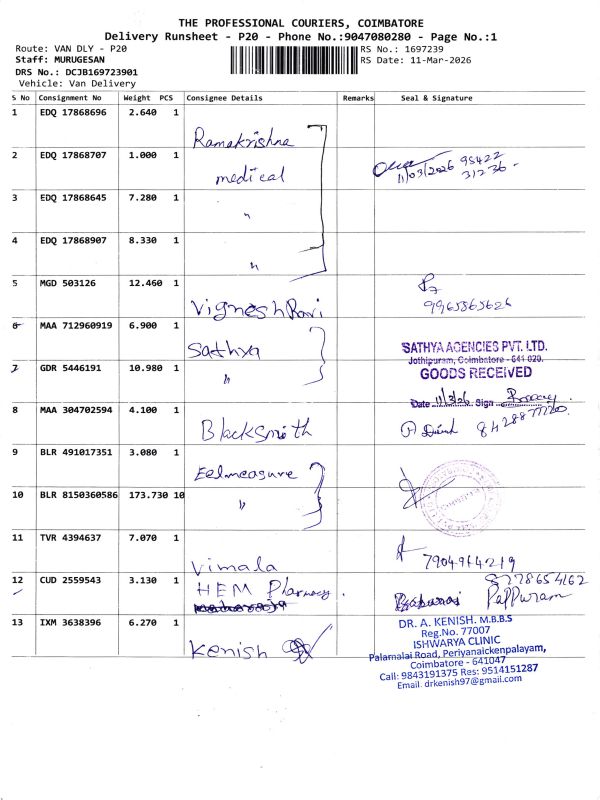 THE PROFESSIONAL COURIERS, COIMBATORE
Delivery Runsheet - P20 - Phone No.:9047080280 - Page No.:1
Route: VAN DLY - P20
RS No.: 1697239
Staff: MURUGESAN
RS Date: 11-Mar-2026
DRS No.: DCJB169723901
Vehicle: Van Delivery
S No Consignment No Weight PCS Consignee Details Remarks Seal & Signature
1 EDQ 17868696 2.640 1 Ramakrishna
2 EDQ 17868707 1.000 1 medical 11/03/2026 95422
31236
3 EDQ 17868645 7.280 1 "
4 EDQ 17868907 8.330 1 "
5 MGD 503126 12.460 1 Vignesh Ravi 9965865626
6 MAA 712960919 6.900 1 Sathya SATHYA AGENCIES PVT. LTD.
Jothipuram, Coimbatore - 641 020.
7 GDR 5446191 10.980 1 " GOODS RECEIVED
Date 11/3/26 Sign
8 MAA 304702594 4.100 1 Blacksmith
9 BLR 491017351 3.080 1 Eelmeasure
10 BLR 8150360586 173.730 10 "
11 TVR 4394637 7.070 1 Vimala 7904914219
12 CUD 2559543 3.130 1 HEM Pharmacy 8778654162
Pappuram
13 IXM 3638396 6.270 1 Kenish
DR. A. KENISH. M.B.B.S
Reg.No. 77007
ISHWARYA CLINIC
Palamalai Road, Periyanaickenpalayam,
Coimbatore - 641047
Call: 9843191375 Res: 9514151287
Email: drkenish97@gmail.com